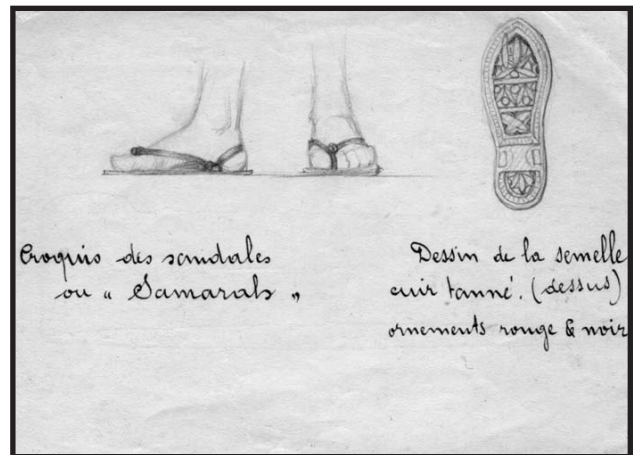 Croquis des sandales
ou " Samarah "
Dessin de la semelle
cuir tanné. (dessus)
ornements rouge & noir